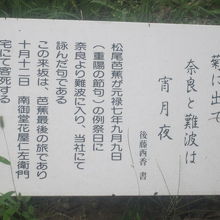 菊に出て
奈良と難波は
宵月夜
後藤西香 書
松尾芭蕉が元禄七年九月九日
(重陽の節句)の例祭日に
奈良より難波に入り、当社にて
詠んだ句である
この来坂は、芭蕉最後の旅であり
十月十二日 南御堂花屋仁左衛門
宅にて客死する